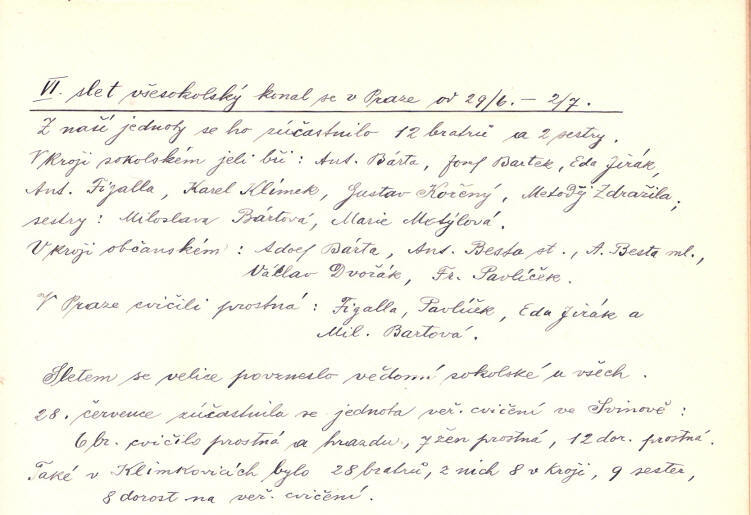 VI. slet všesokolský konal se v Praze od 29/6. – 2/7.
Z naší jednoty se ho súčastnilo 12 bratrů a 2 sestry.
V kroji sokolském jeli bři : Ant. Bárta, Josef Bartek, Eda Jirák,
Ant. Figalla, Karel Klimek, Gustav Kořený, Metoděj Zdražila;
sestry : Miloslava Bártová, Marie Motýlová.
V kroji občanském : Adolf Bárta, Ant. Besta st., A. Besta ml.,
Václav Dvořák, Fr. Pavlíček.
V Praze cvičili prostná : Figalla, Pavlíček, Eda Jirák a
Mil. Bartová.
Sletem se velice povzneslo vědomí sokolské u všech.
28. července súčastnila se jednota veř. cvičení ve Svinově :
6 br. cvičilo prostná a hrazdu, 7 žen prostná, 12 dor. prostná.
Také v Klimkovicích bylo 28 bratrů, z nich 8 v kroji, 9 sester,
8 dorost na veř. cvičení.